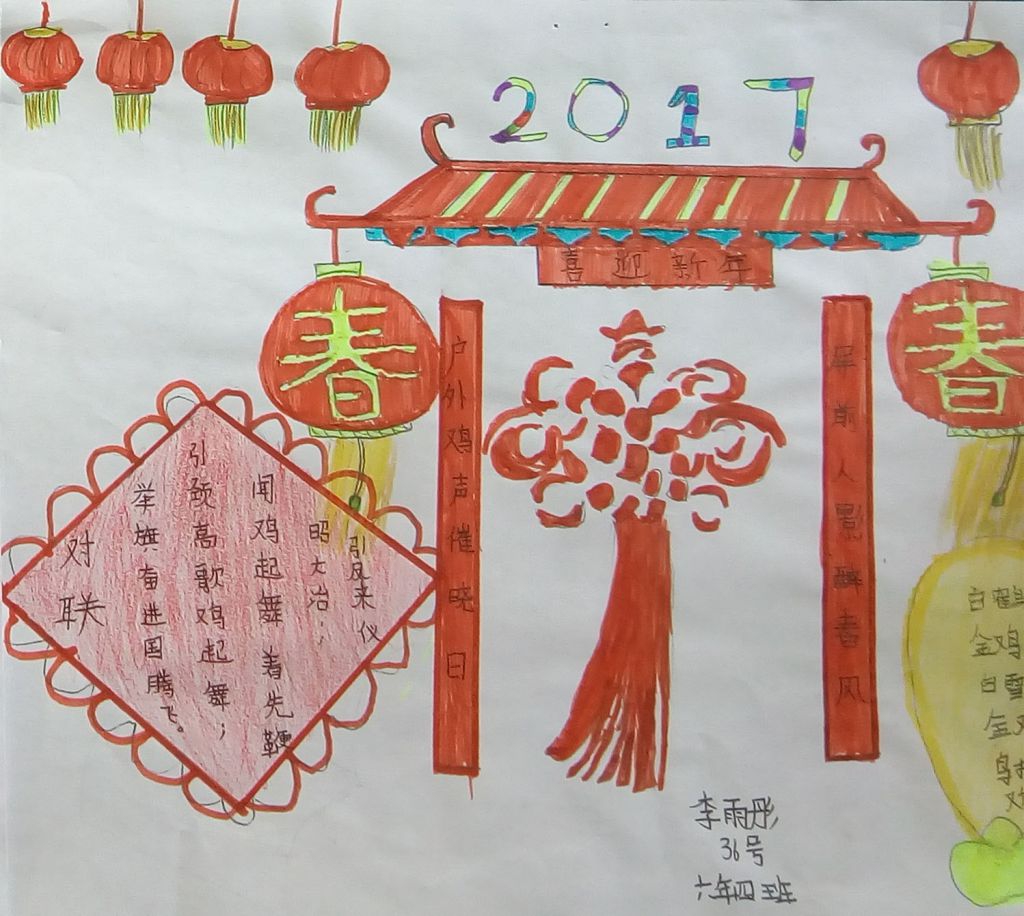 2017
喜迎新年
春
春
户外鸡声催晓日
屏前人影醉春风
对联
举旗奋进国腾飞。
引颈高歌鸡起舞；
闻鸡起舞着先鞭
昭大治；
来仪
白鹤
金鸡
白雪
金鸡
李雨彤
36号
六年四班